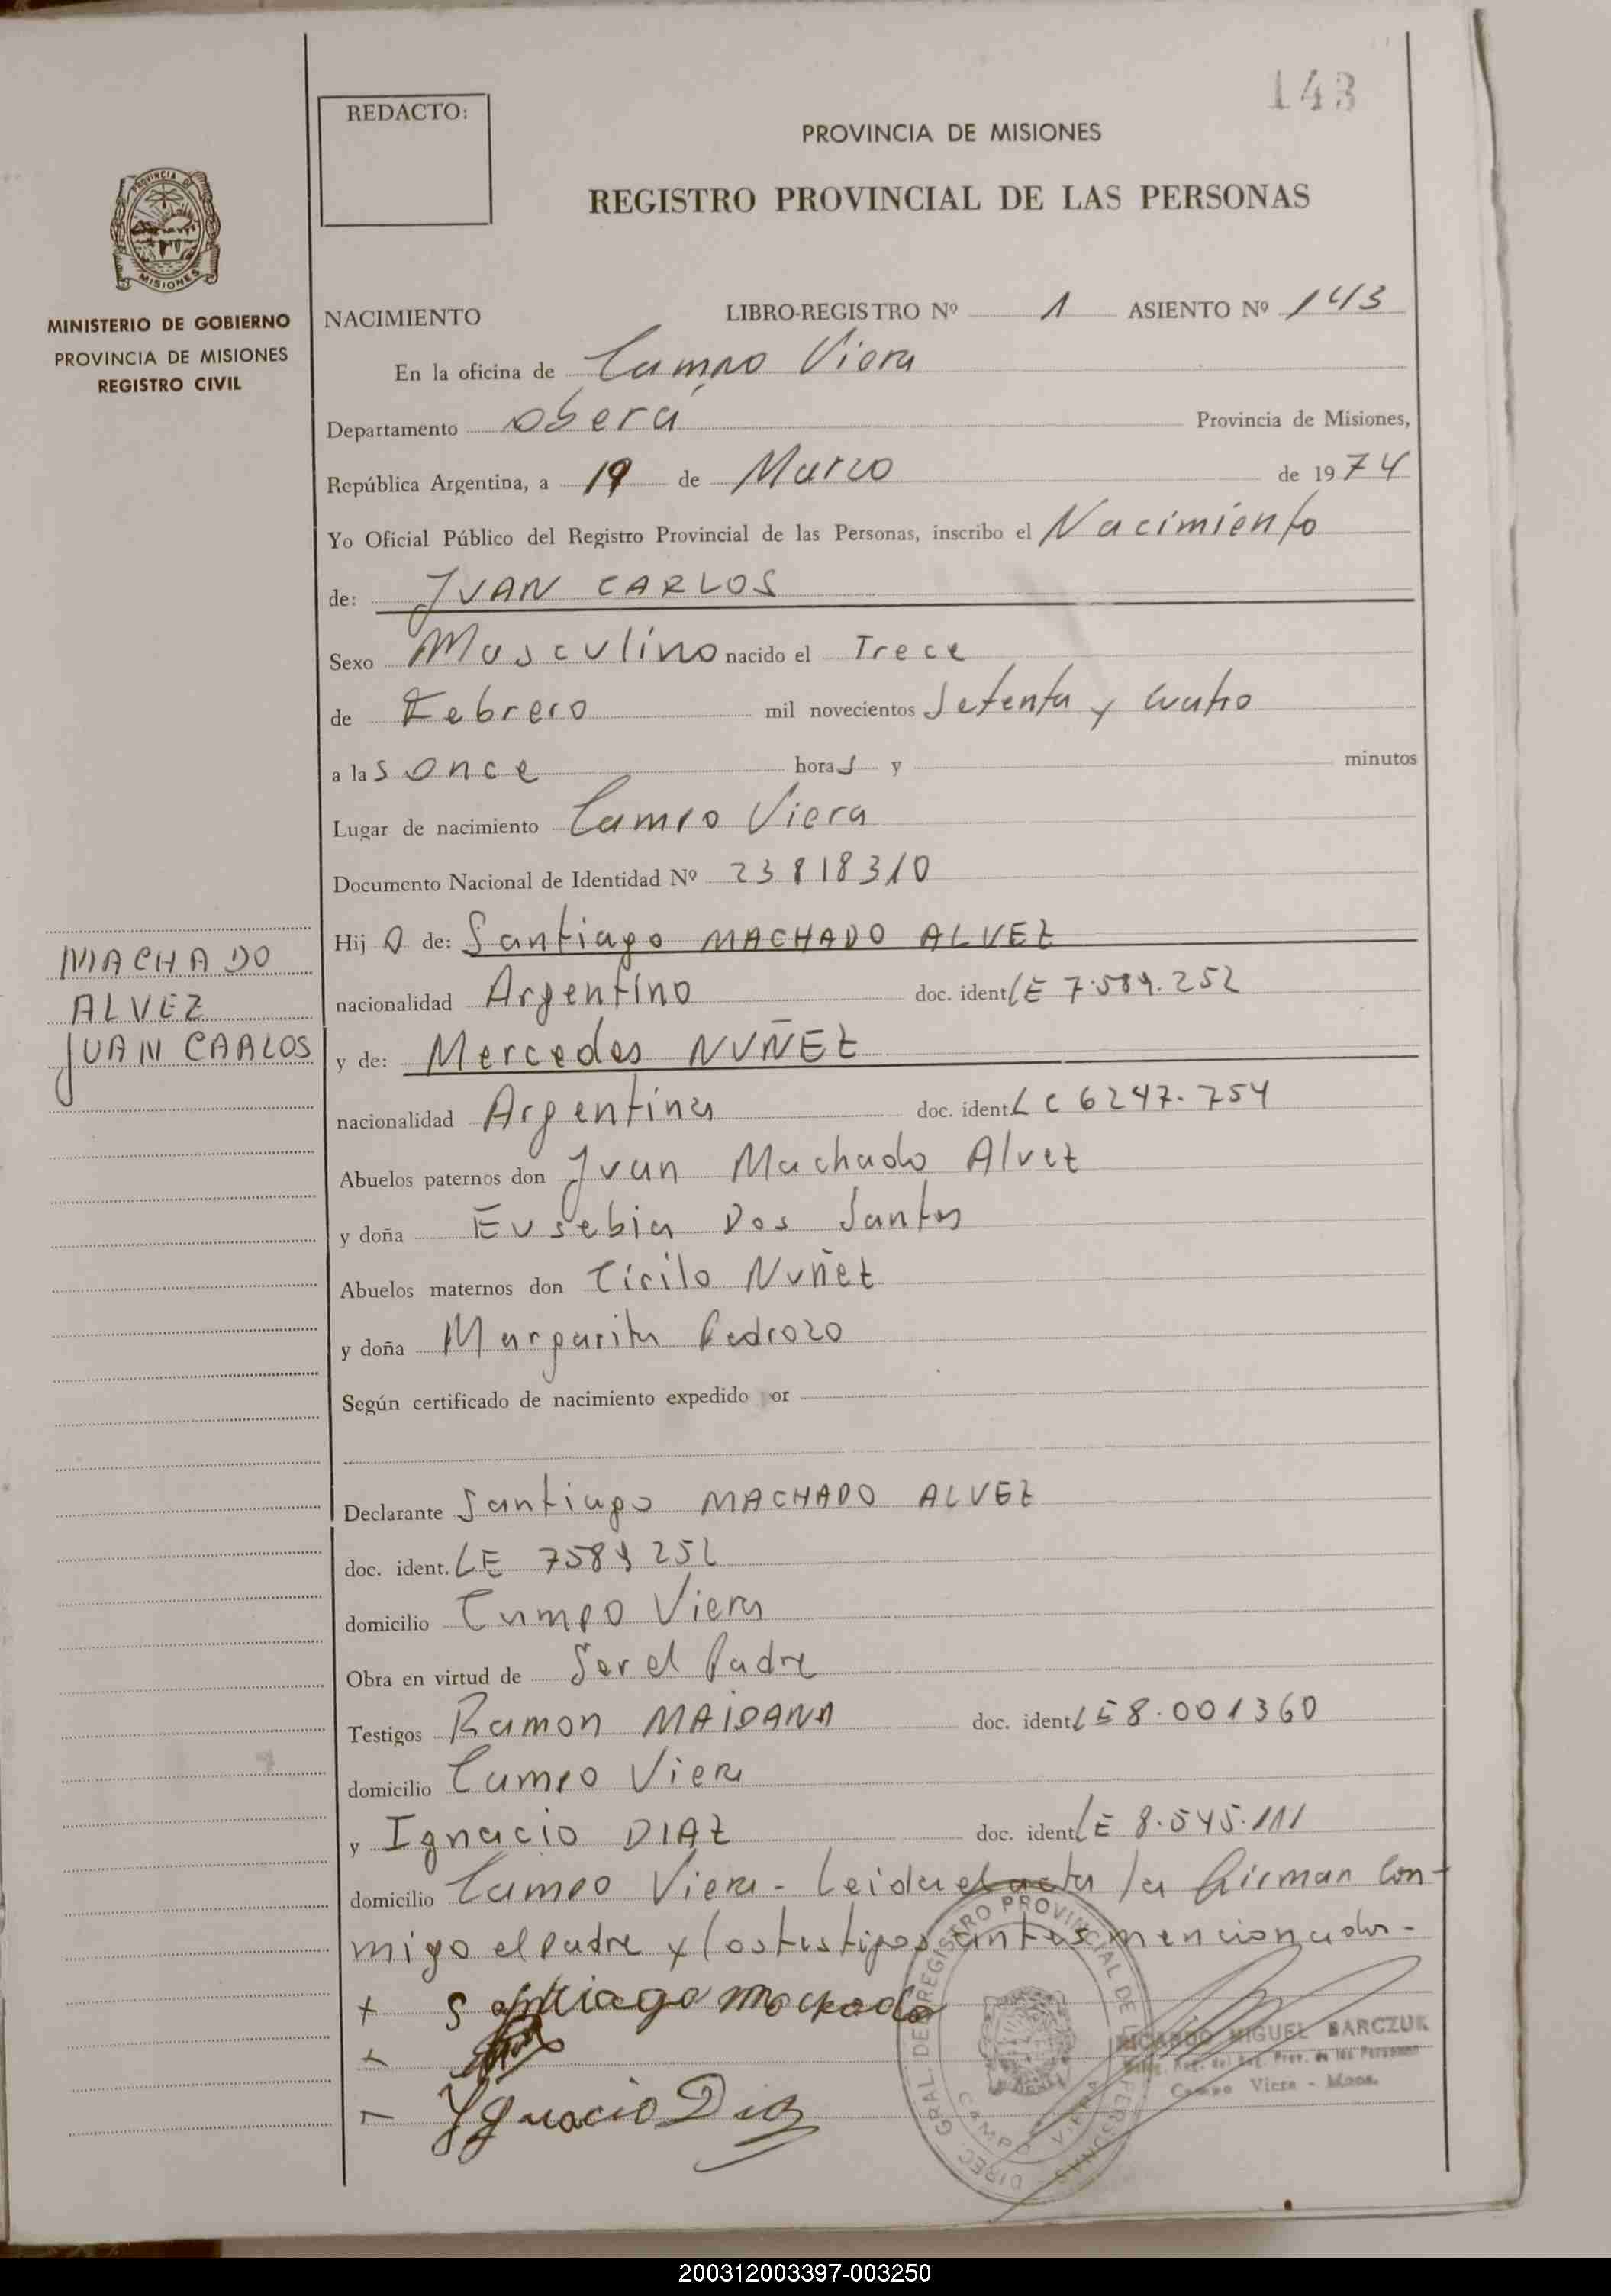 143
REDACTO:
PROVINCIA DE MISIONES
REGISTRO PROVINCIAL DE LAS PERSONAS
PROVINCIA DE
MISIONES
MINISTERIO DE GOBIERNO
PROVINCIA DE MISIONES
REGISTRO CIVIL
NACIMIENTO LIBRO-REGISTRO Nº 1 ASIENTO Nº 143
En la oficina de Campo Viera
Departamento Oberá Provincia de Misiones,
República Argentina, a 19 de Marzo de 1974
Yo Oficial Público del Registro Provincial de las Personas, inscribo el Nacimiento
de: JUAN CARLOS
Sexo Masculino nacido el Trece
de Febrero mil novecientos Setenta y cuatro
a las once horas y minutos
Lugar de nacimiento Campo Viera
Documento Nacional de Identidad Nº 23818310
Hijo de: Santiago MACHADO ALVEZ
MACHADO
ALVEZ
JUAN CARLOS
nacionalidad Argentino doc. ident LE 7.589.252
y de: Mercedes NUÑEZ
nacionalidad Argentina doc. ident. LC 6247.754
Abuelos paternos don Juan Machado Alvez
y doña Eusebia Dos Santos
Abuelos maternos don Cirilo Nuñez
y doña Margarita Pedrozo
Según certificado de nacimiento expedido por
Declarante Santiago MACHADO ALVEZ
doc. ident. LE 7589252
domicilio Campo Viera
Obra en virtud de Ser el Padre
Testigos Ramon MAIDANA doc. ident LE 8.001360
domicilio Campo Viera
y Ignacio DIAZ doc. ident LE 8.545.111
domicilio Campo Viera - Leida el acta la firman con-
migo el padre y los testigos antes mencionados-
+ Santiago Machado
+
- Ygnacio Diaz
DIREC. GRAL. DEL REGISTRO PROVINCIAL DE LAS PERSONAS
CAMPO VIERA
RICARDO MIGUEL BARCZUK
Reg. del Reg. Prov. de las Personas
Campo Viera - Mnes.
200312003397-003250